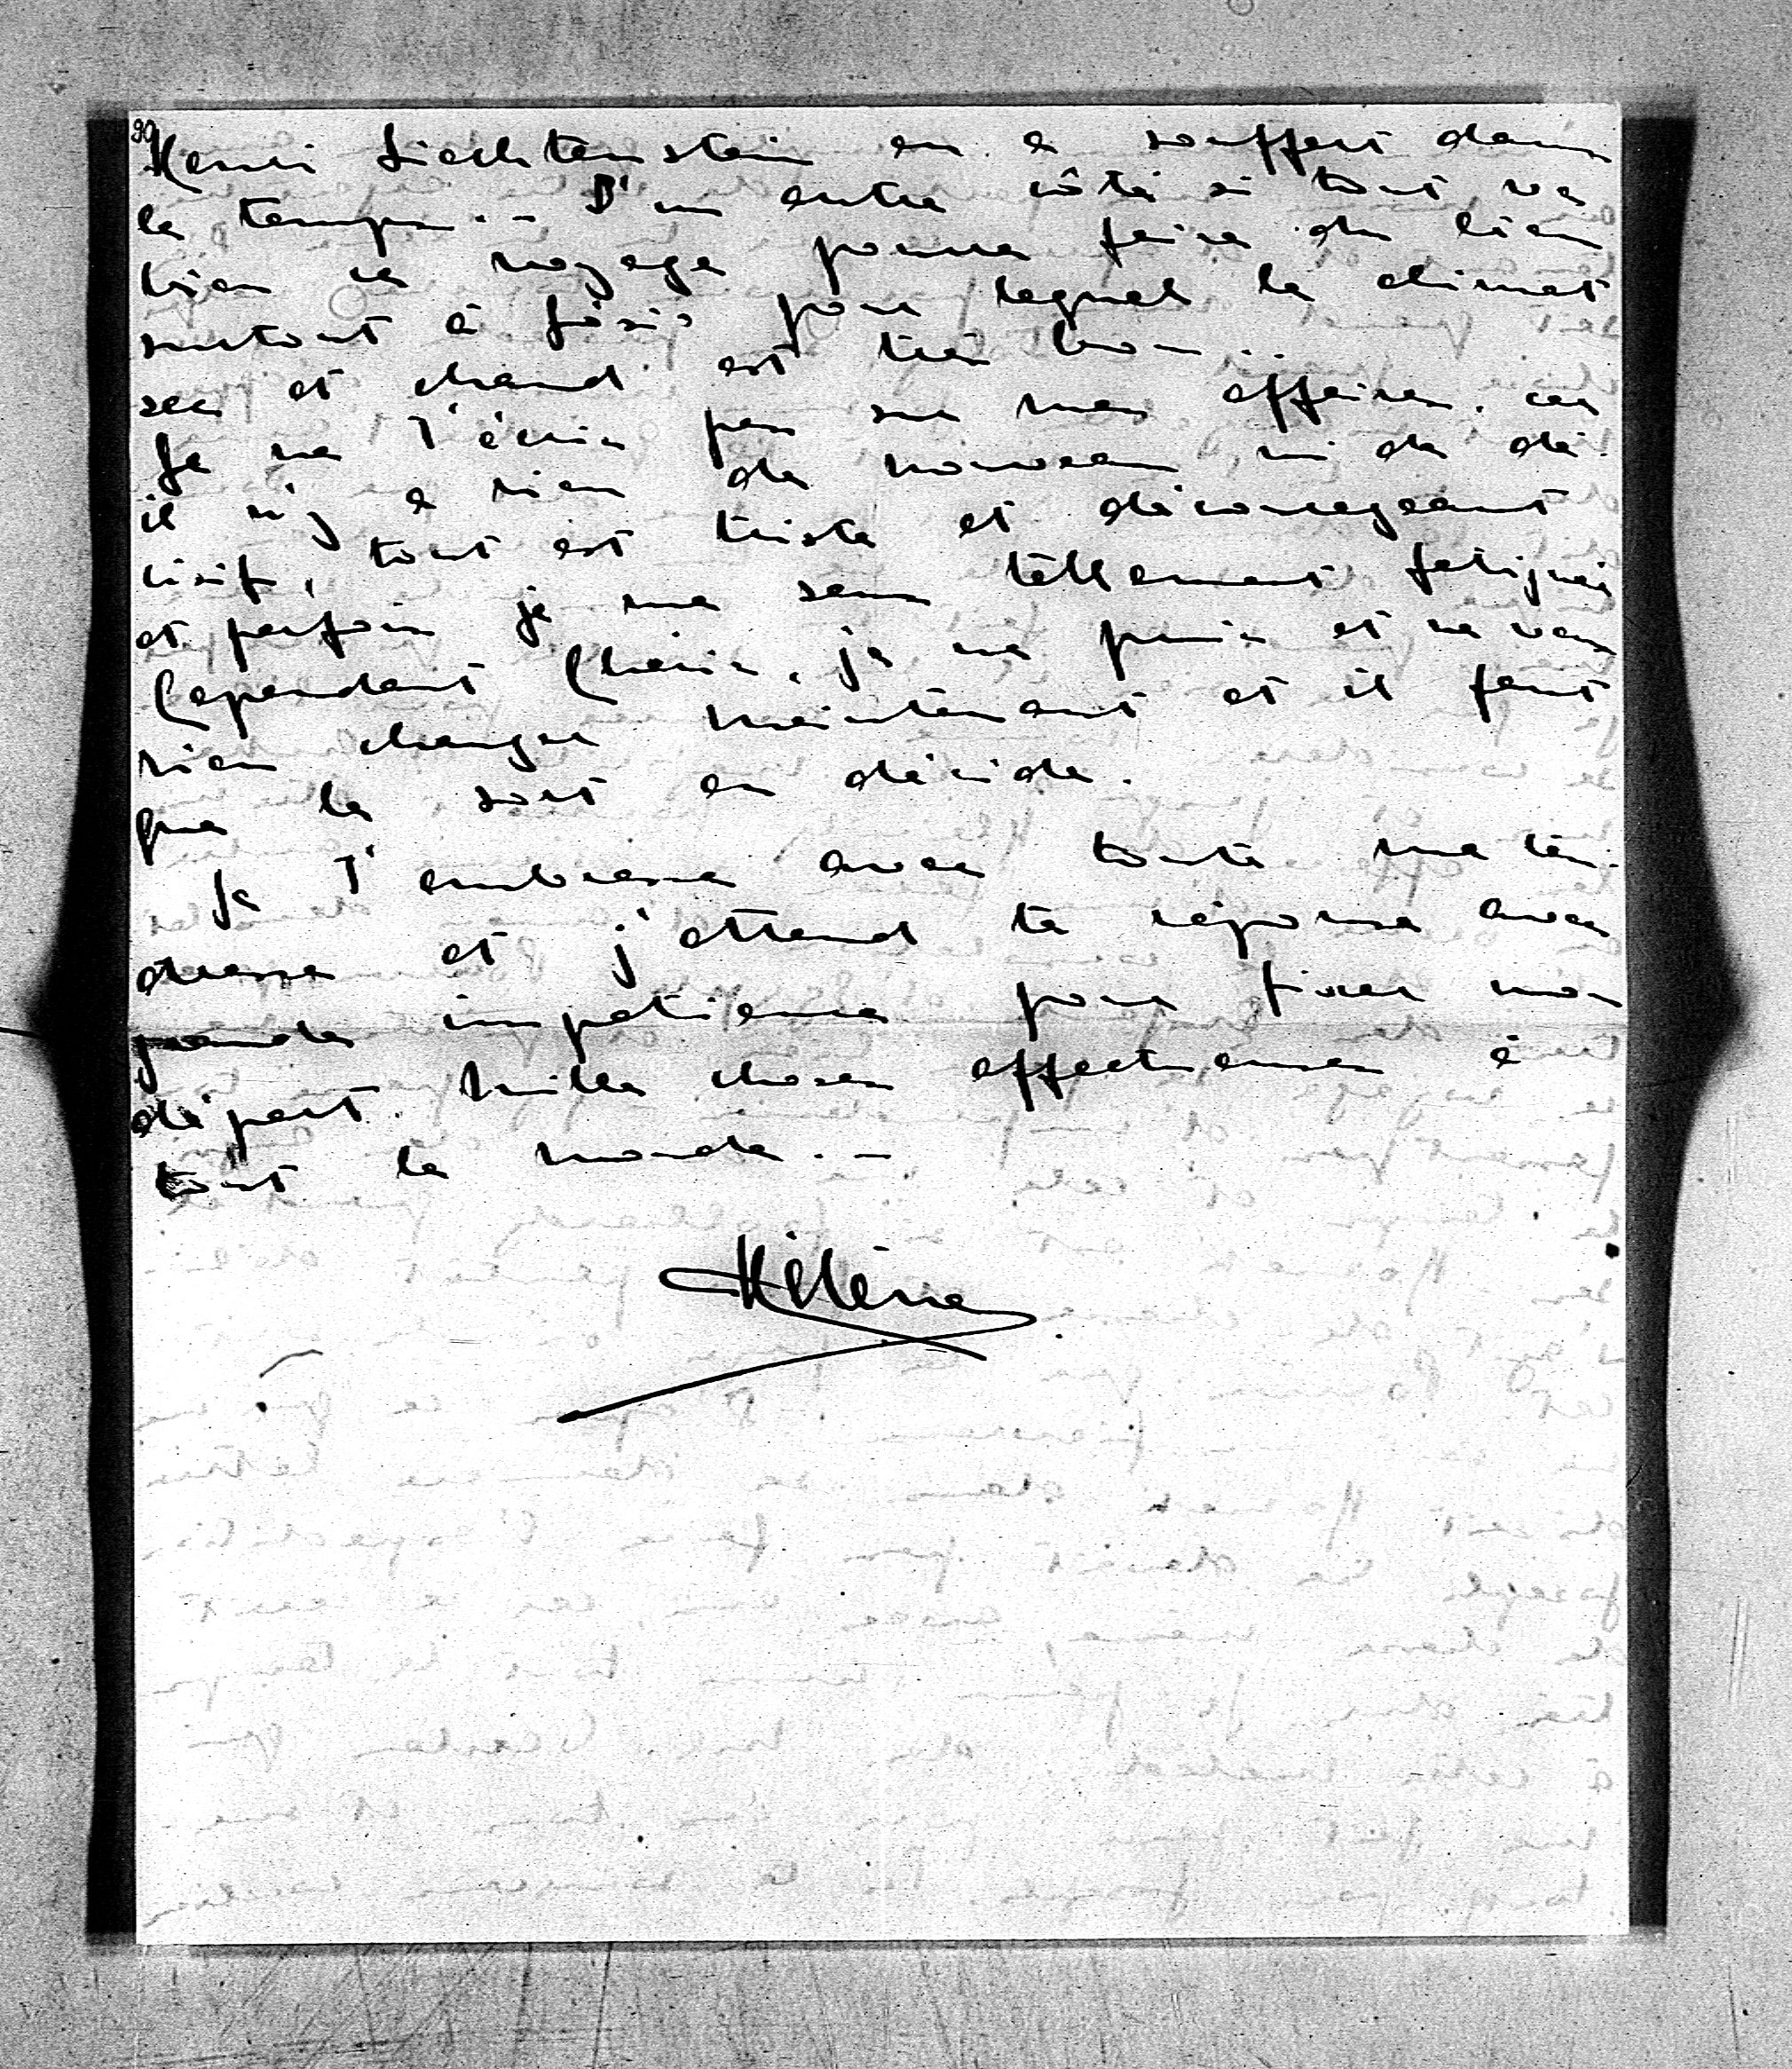 90
Henri Liechtenstein en a souffert dans
le temps.. – D'un autre côté si tout va
bien ce voyage pourra faire du bien
surtout à pour lequel le climat
sec et chaud est très bon...
Je ne T'écris pas sur mes affaires, car
il n'y a rien de nouveau ni de dé-
cisif, tout est triste et décourageant
et parfois je me sens tellement fatiguée
Cependant Chérie, je ne puis et ne veux
rien changer maintenant et il faut
que le sort en décide.
Je T'embrasse avec toute ma ten-
dresse et j'attend ta réponse avec
grande impatience pour fixer mon
départ. Mille choses affectueuses à
tout le monde. –
Hélène